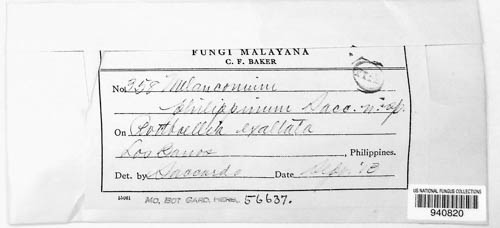 FUNGI MALAYANA
C. F. BAKER
No. 358 Melanconium
philippinum Sacc. n. sp.
On Rottboellia exaltata
Los Banos, Philippines.
Det. by Saccardo Date '13
MO. BOT. GARD. HERB. 56637.
US NATIONAL FUNGUS COLLECTIONS
940820